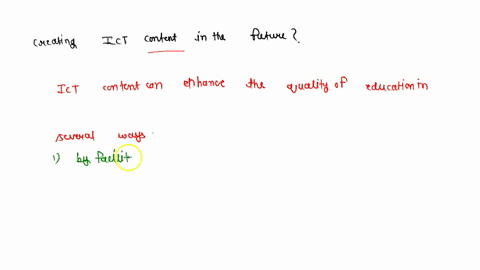 creating ICT content in the future?
ICT content can enhance the quality of education in
several ways.
1) by facilit